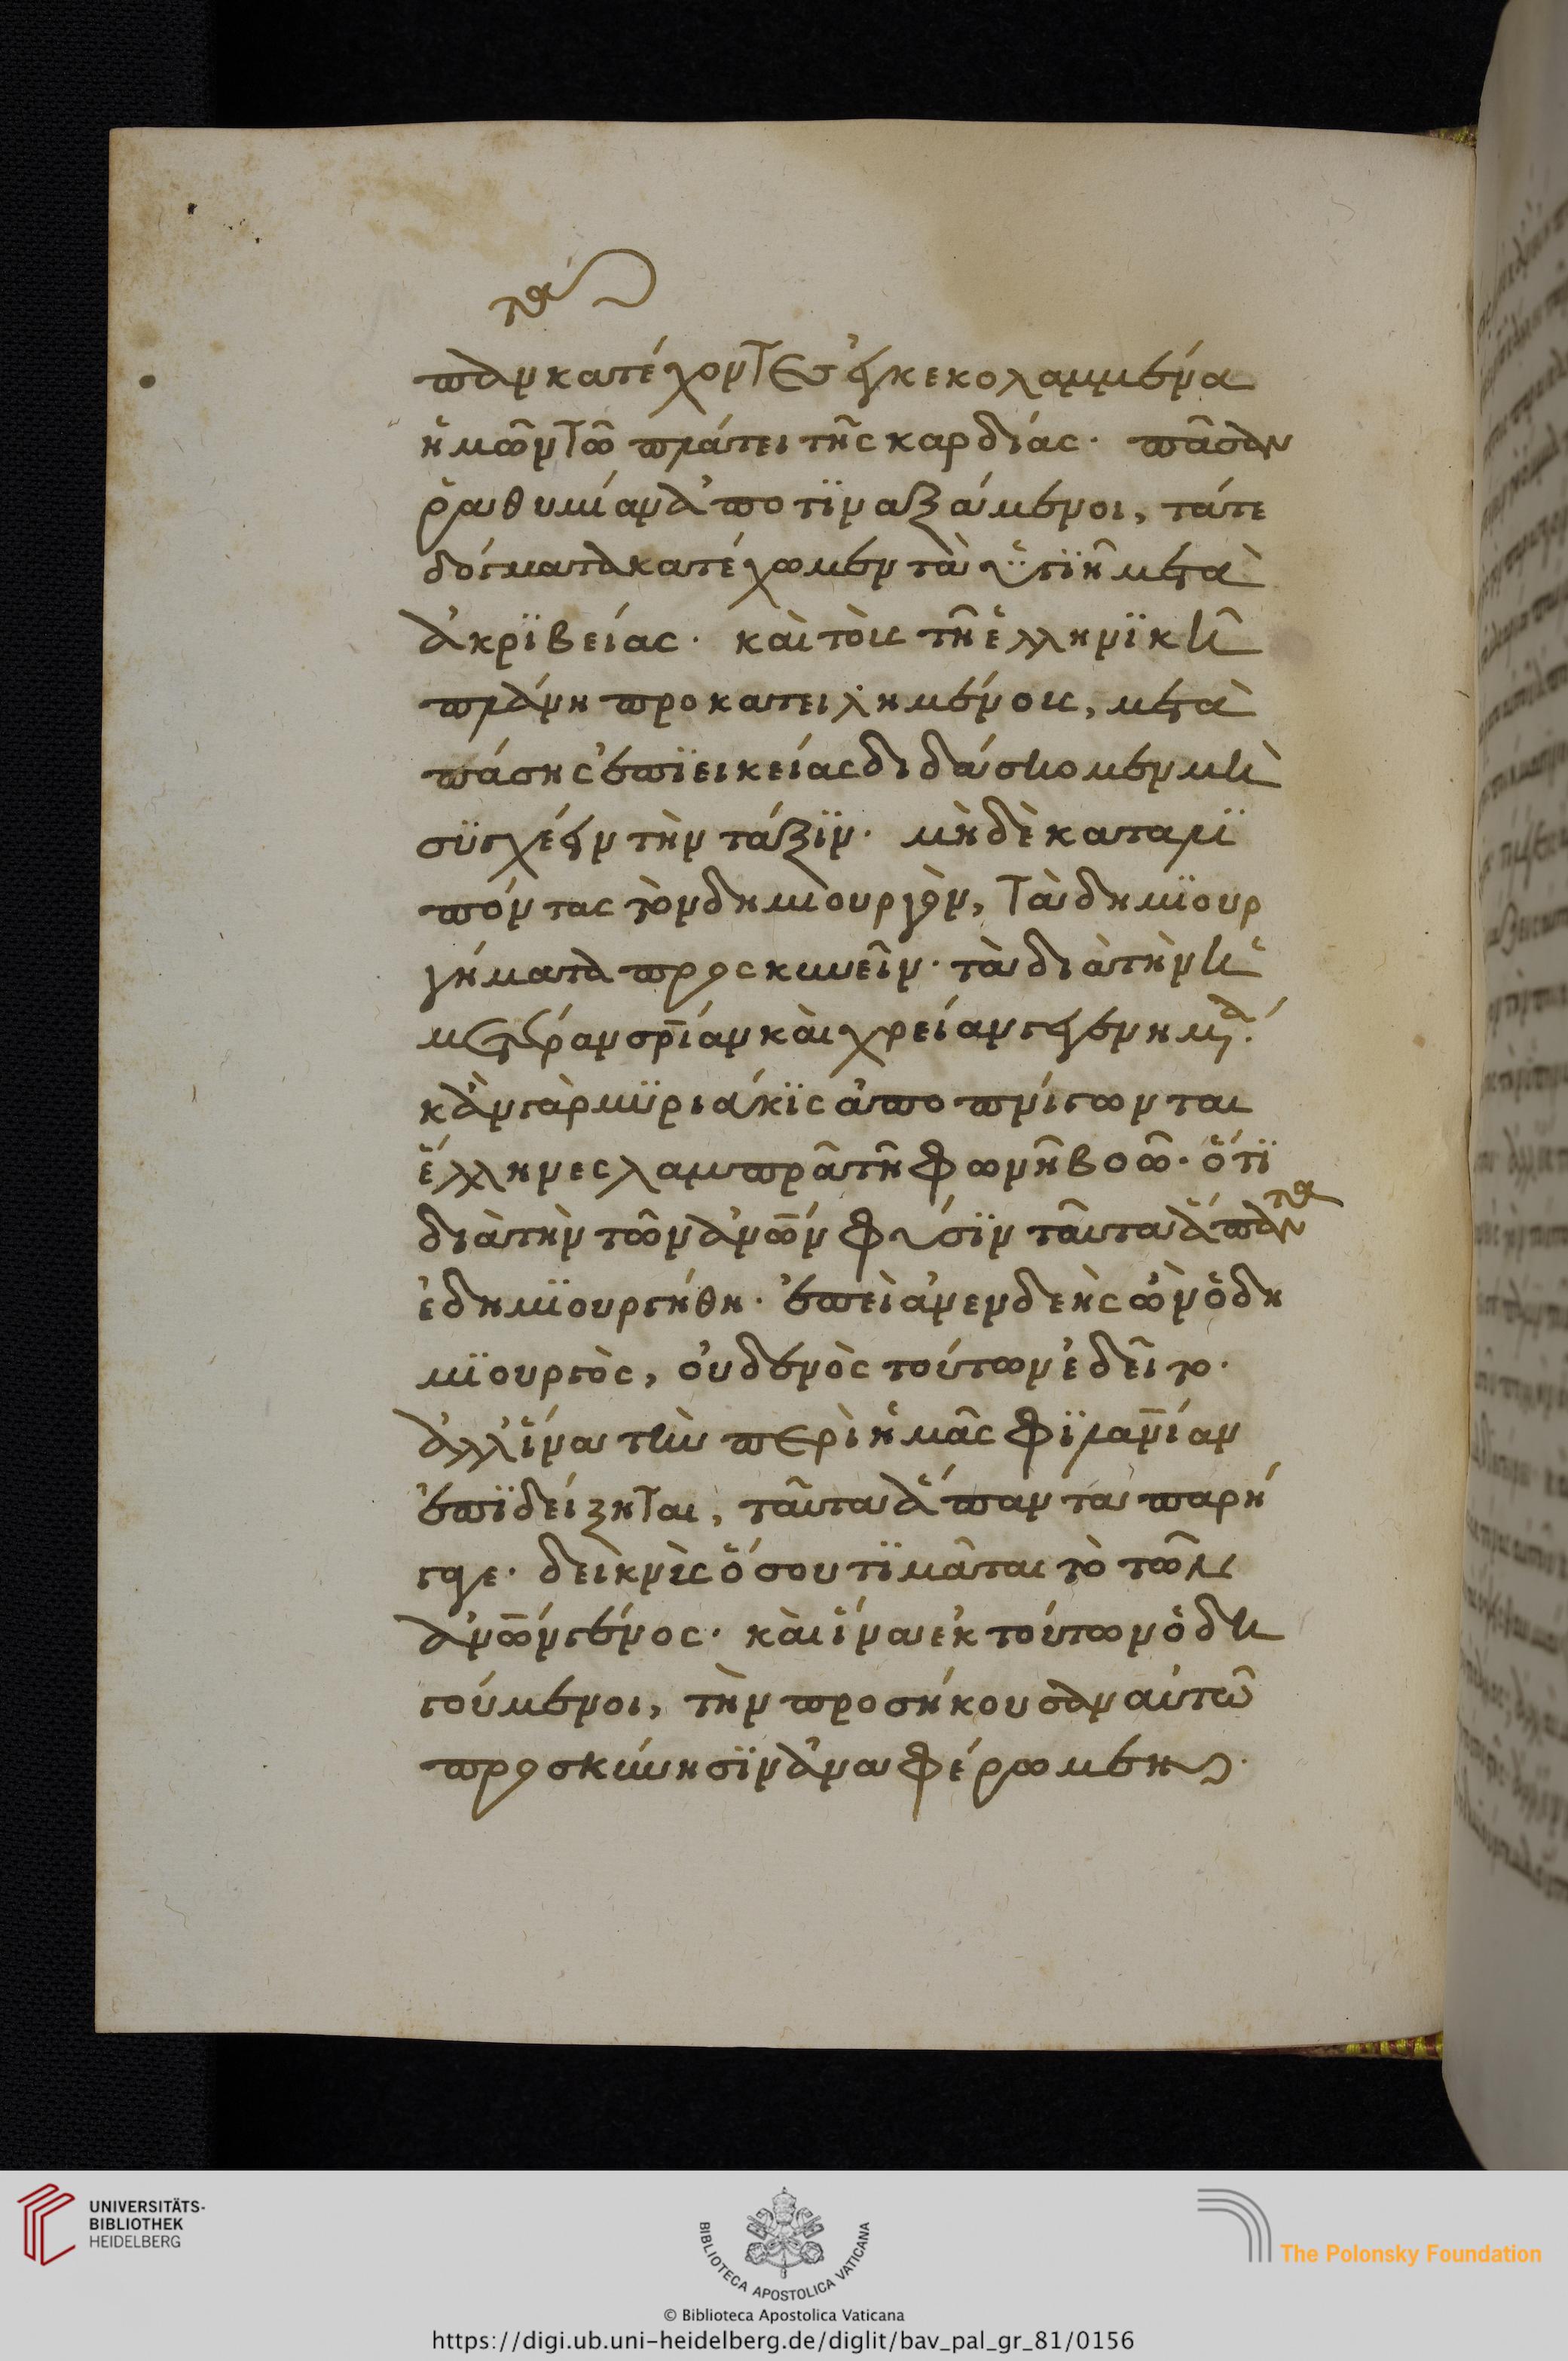 τα
παν κατέχοντες ἐγκεκολαμμένα
ἡμῶν τῶ πλάτει τῆς καρδίας· πᾶσαν
ῥαθυμίαν ἀποτϊναξάμενοι, τάτε
δόγματα κατέχωμεν τὰ ὑγϊῆ μετὰ
ἀκρϊβείας· καὶ τοὺς τῆ ἑλληνϊκῆ
πλάνη προκατειλημένους, μετὰ
πάσης ἐπϊεικείας διδάσκομεν μὴ
συγχέειν τὴν τάξϊν· μὴδὲ καταλϊ
πόντας τὸν δημιουργὸν, τὰ δημϊουρ
γήματα προσκυνεῖν· τὰ διὰ τὴν ἡ
μετέραν σρ̅ίαν καὶ χρείαν γεγενημένα·
κἂν γὰρ μυριάκϊς ἀποπνίγωνται
ἕλληνες λαμπρᾶ τῆ φωνῆ βοῶ· ὅτϊ
διὰ τὴν τῶν ἀνω̅ν φύσϊν ταῦτα ἅπαντα
ἐδημϊουργήθη· ἐπεὶ ἀνενδεὴς ὢν ὁ δη
μϊουργὸς, οὐδενὸς τούτων ἐδεῖτο·
ἀλλ' ἵνα τὴν περὶ ἡμᾶς φϊλαν̅ίαν
ἐπϊδείξηται, ταῦτα ἅπαντα παρή
γαγε· δεικνὺς ὅσου τϊμᾶται τὸ τῶν
ἀνω̅ν γένος· καὶ ἵνα ἐκ τούτων ὁδη
γούμενοι, τὴν προσήκουσαν αὐτῶ
προσκύνησϊν ἀναφέρωμεν·
UNIVERSITÄTS-
BIBLIOTHEK
HEIDELBERG
BIBLIOTECA APOSTOLICA VATICANA
The Polonsky Foundation
© Biblioteca Apostolica Vaticana
https://digi.ub.uni-heidelberg.de/diglit/bav_pal_gr_81/0156